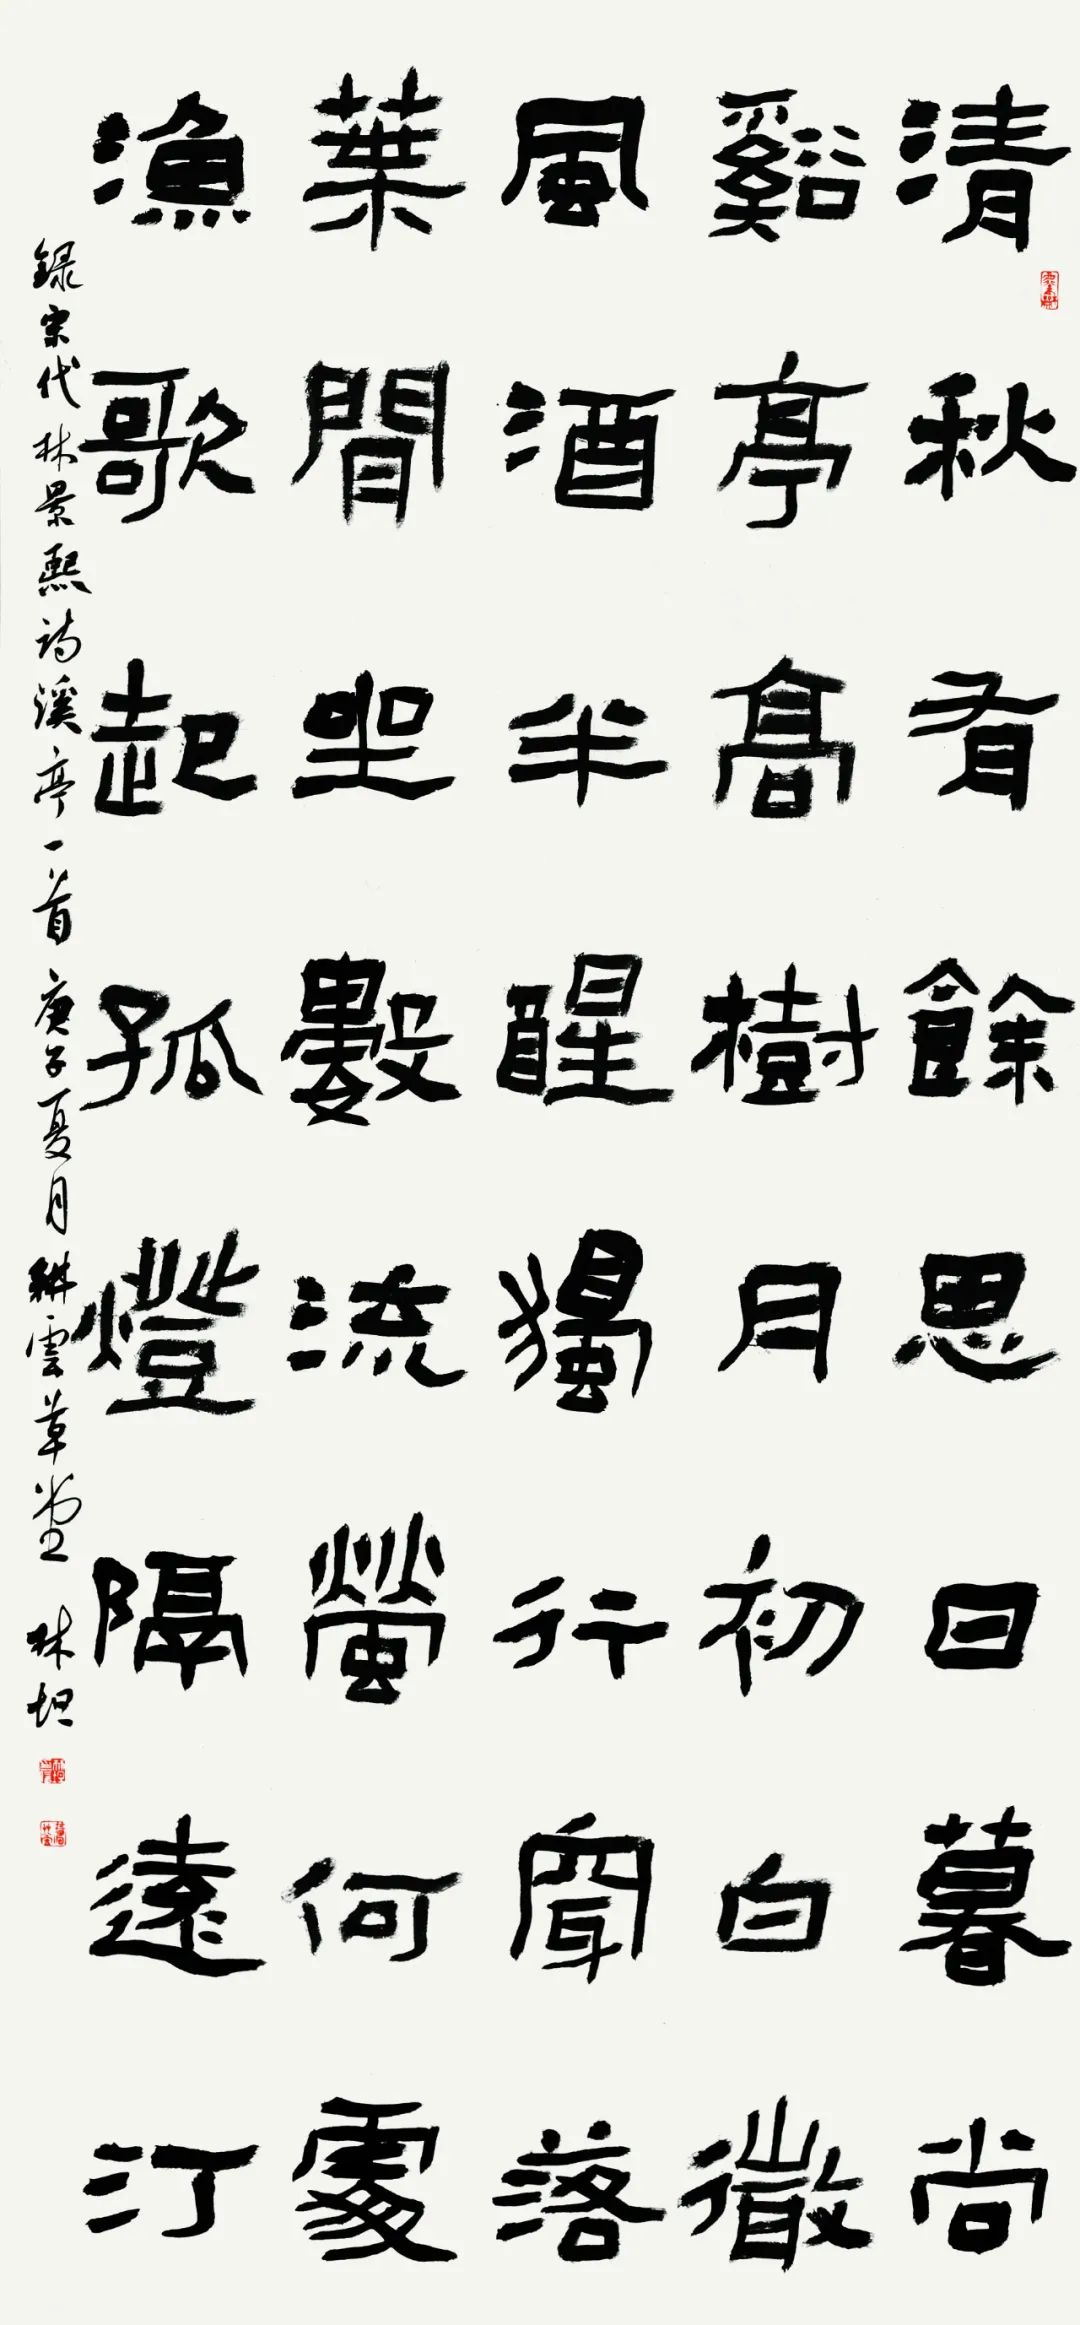 清秋有餘思日暮尚
谿亭高樹月初白微
風酒半醒獨行聞落
葉閒坐數流螢何處
漁歌起孤燈隔遠汀
録宋代林景熙詩溪亭一首庚子夏月耕雲草堂林坦